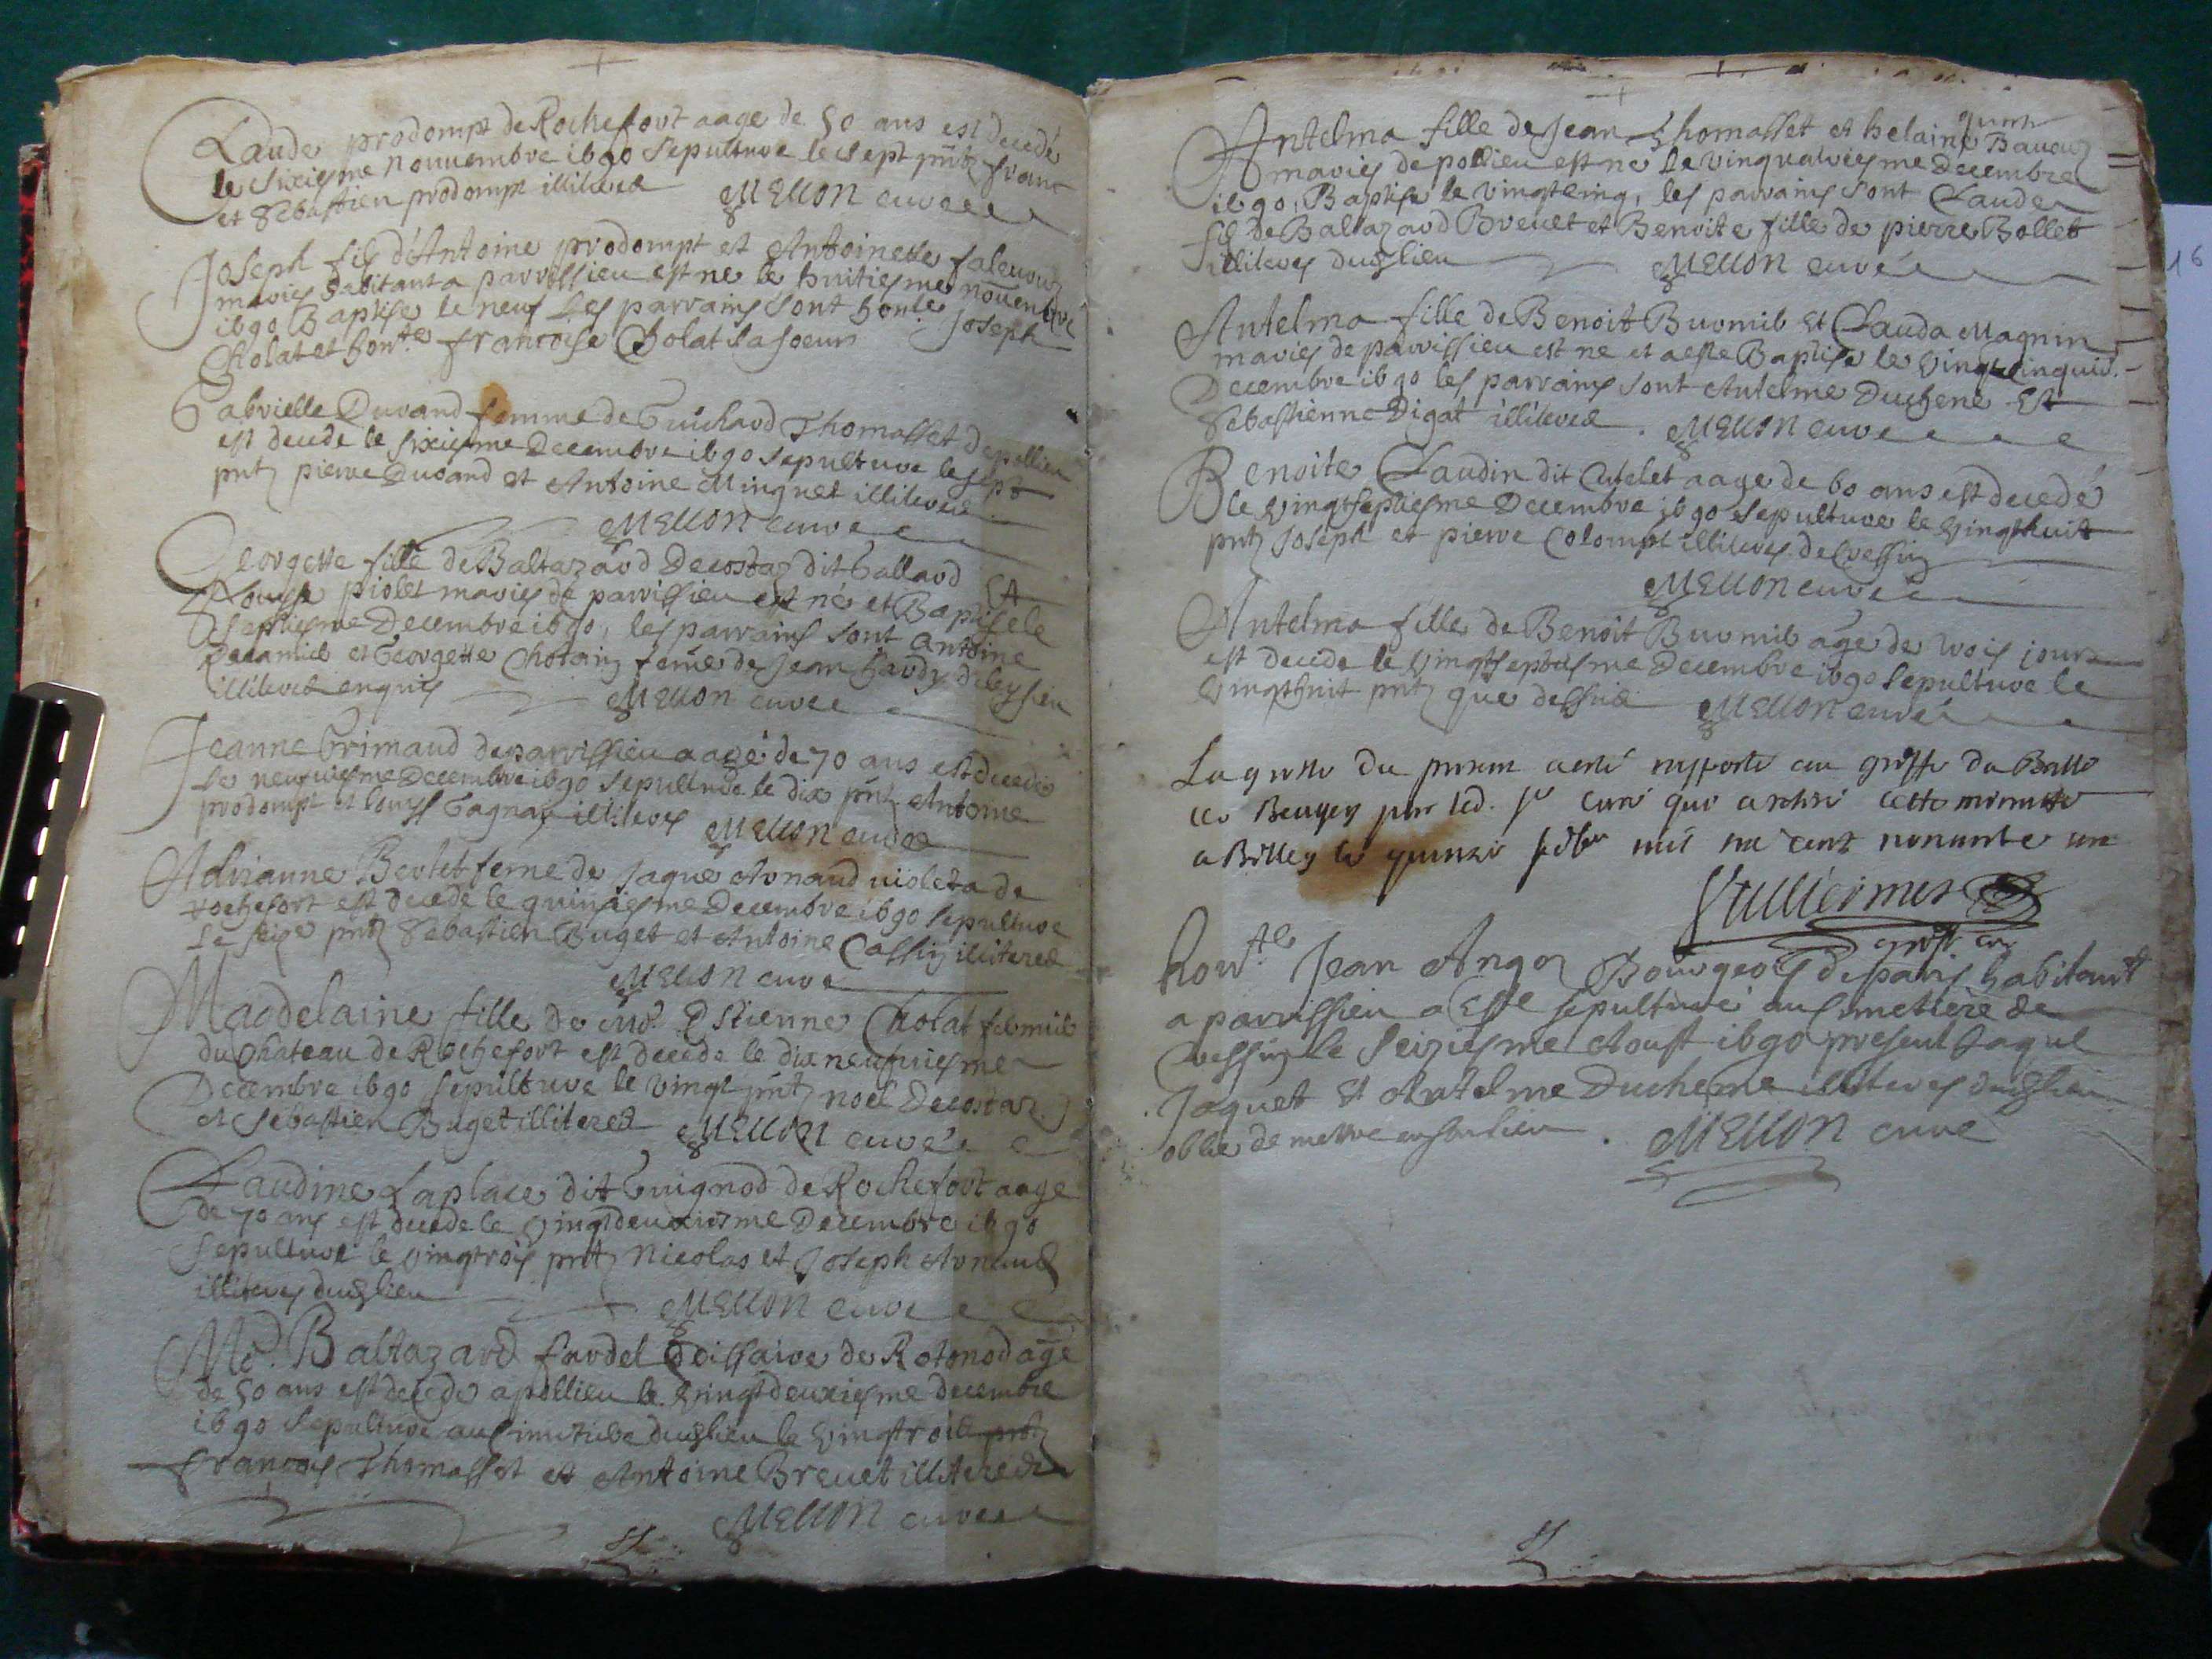 Claude prodompt de Rochefort aage de 50 ans est decedé
le sixiesme nouuembre 1690 sepulture le sept pnts franc
et Sebastien prodompt illiteres MELLON curé
Joseph fils d'Antoine prodompt et Antoinette
mariés habitant a parvissieu est ne le huitiesme novembre
1690 Baptise le neuf Les parrains sont honle Joseph
Cholat et honte francoise Cholat sa soeur
Gabrielle Durand femme de Guichard Thomasset de pollieu
est decede le sixiesme Decembre 1690 sepulture le sept
pnts pierre Durand et Antoine Minguet illiteres
MELLON curé
Georgette fille de Baltazard Decostaz dit Gallard Et
Louise piolet mariés de parvissieu est né et Baptise le
septiesme Decembre 1690, les parrains sont Antoine
et Georgette femme de Jean hardy de leysieu
illiteres enquis MELLON curé
Jeanne Grimaud de parvissieu aagé de 70 ans est decedée
le neufuiesme Decembre 1690 sepulture le dix pnts Antoine
prodompt et Louys Gagnaz illiteres MELLON curé
Adrianne Bertet feme de Jaque Arnaud violet a de
rochefort est decede le quinziesme Decembre 1690 sepulture
le seize pnts Sebastien Buget et Antoine Cassin illiteres
MELLON curé
Magdelaine fille de md Estienne Cholat
du Chateau de Rochefort est decede le dixneufuiesme
Decembre 1690 sepulture le vingt pnts noel Decostaz
et Sebastien Buget illiteres MELLON curé
Claudine Laplace dit Guignod de Rochefort aage
de 70 ans est decede le vingtdeuxiesme Decembre 1690
sepulture le vingtrois pnts Nicolas et Joseph Arnaud
illiteres dud lieu MELLON curé
Md. Baltazard fardel de Rotonod agé
de 50 ans est decede a pollieu le vingtdeuxiesme decembre
1690 sepulture au simitiere dud lieu le vingtrois pnts
francois Thomasset et Antoine Brevet illiteres
MELLON curé
Antelma fille de Jean Thomasset et helaine
mariés de pollieu est né le vinquatriesme Decembre
1690, Baptise le vingtcinq, les parrains sont Claude
fils de Baltazard Brevet et Benoite fille de pierre Bollet
illiteres dud lieu MELLON curé
Antelma fille de Benoit Buomib Et Clauda Magnin
mariés de parvissieu est ne et a este Baptise le vingtcinquie.
Decembre 1690 les parrains sont Antelme Duchene Et
Sebastienne Digat illiteres. MELLON curé
Benoite Claudin dit Cutelet aage de 60 ans est decedé
le vingtseptiesme Decembre 1690 sepulture le vingthuit
pnts Joseph et pierre Colompt illiteres de Cressin
MELLON curé
Antelma fille de Benoit Buomib age de trois jours
est decede le vingtseptiesme Decembre 1690 sepulture le
vingthuit pnts que dessus MELLON curé
La grosse du presan a esté rapporté au greffe du Balle
de Beugey par led. Sr curé qui a retiré cette minutte
a Belley le quinze febvr mil six cent nonante un
Vulliermes
honble Jean Angoz Bourgeois de paris habitant
a parvissieu a Este sepulturé au simetiere de
Cressin le seiziesme Aoust 1690 present Jaque
Jaquet Et Antelme Ducheme illiteres dud lieu
oblie de mettre en son lieu. MELLON curé
16